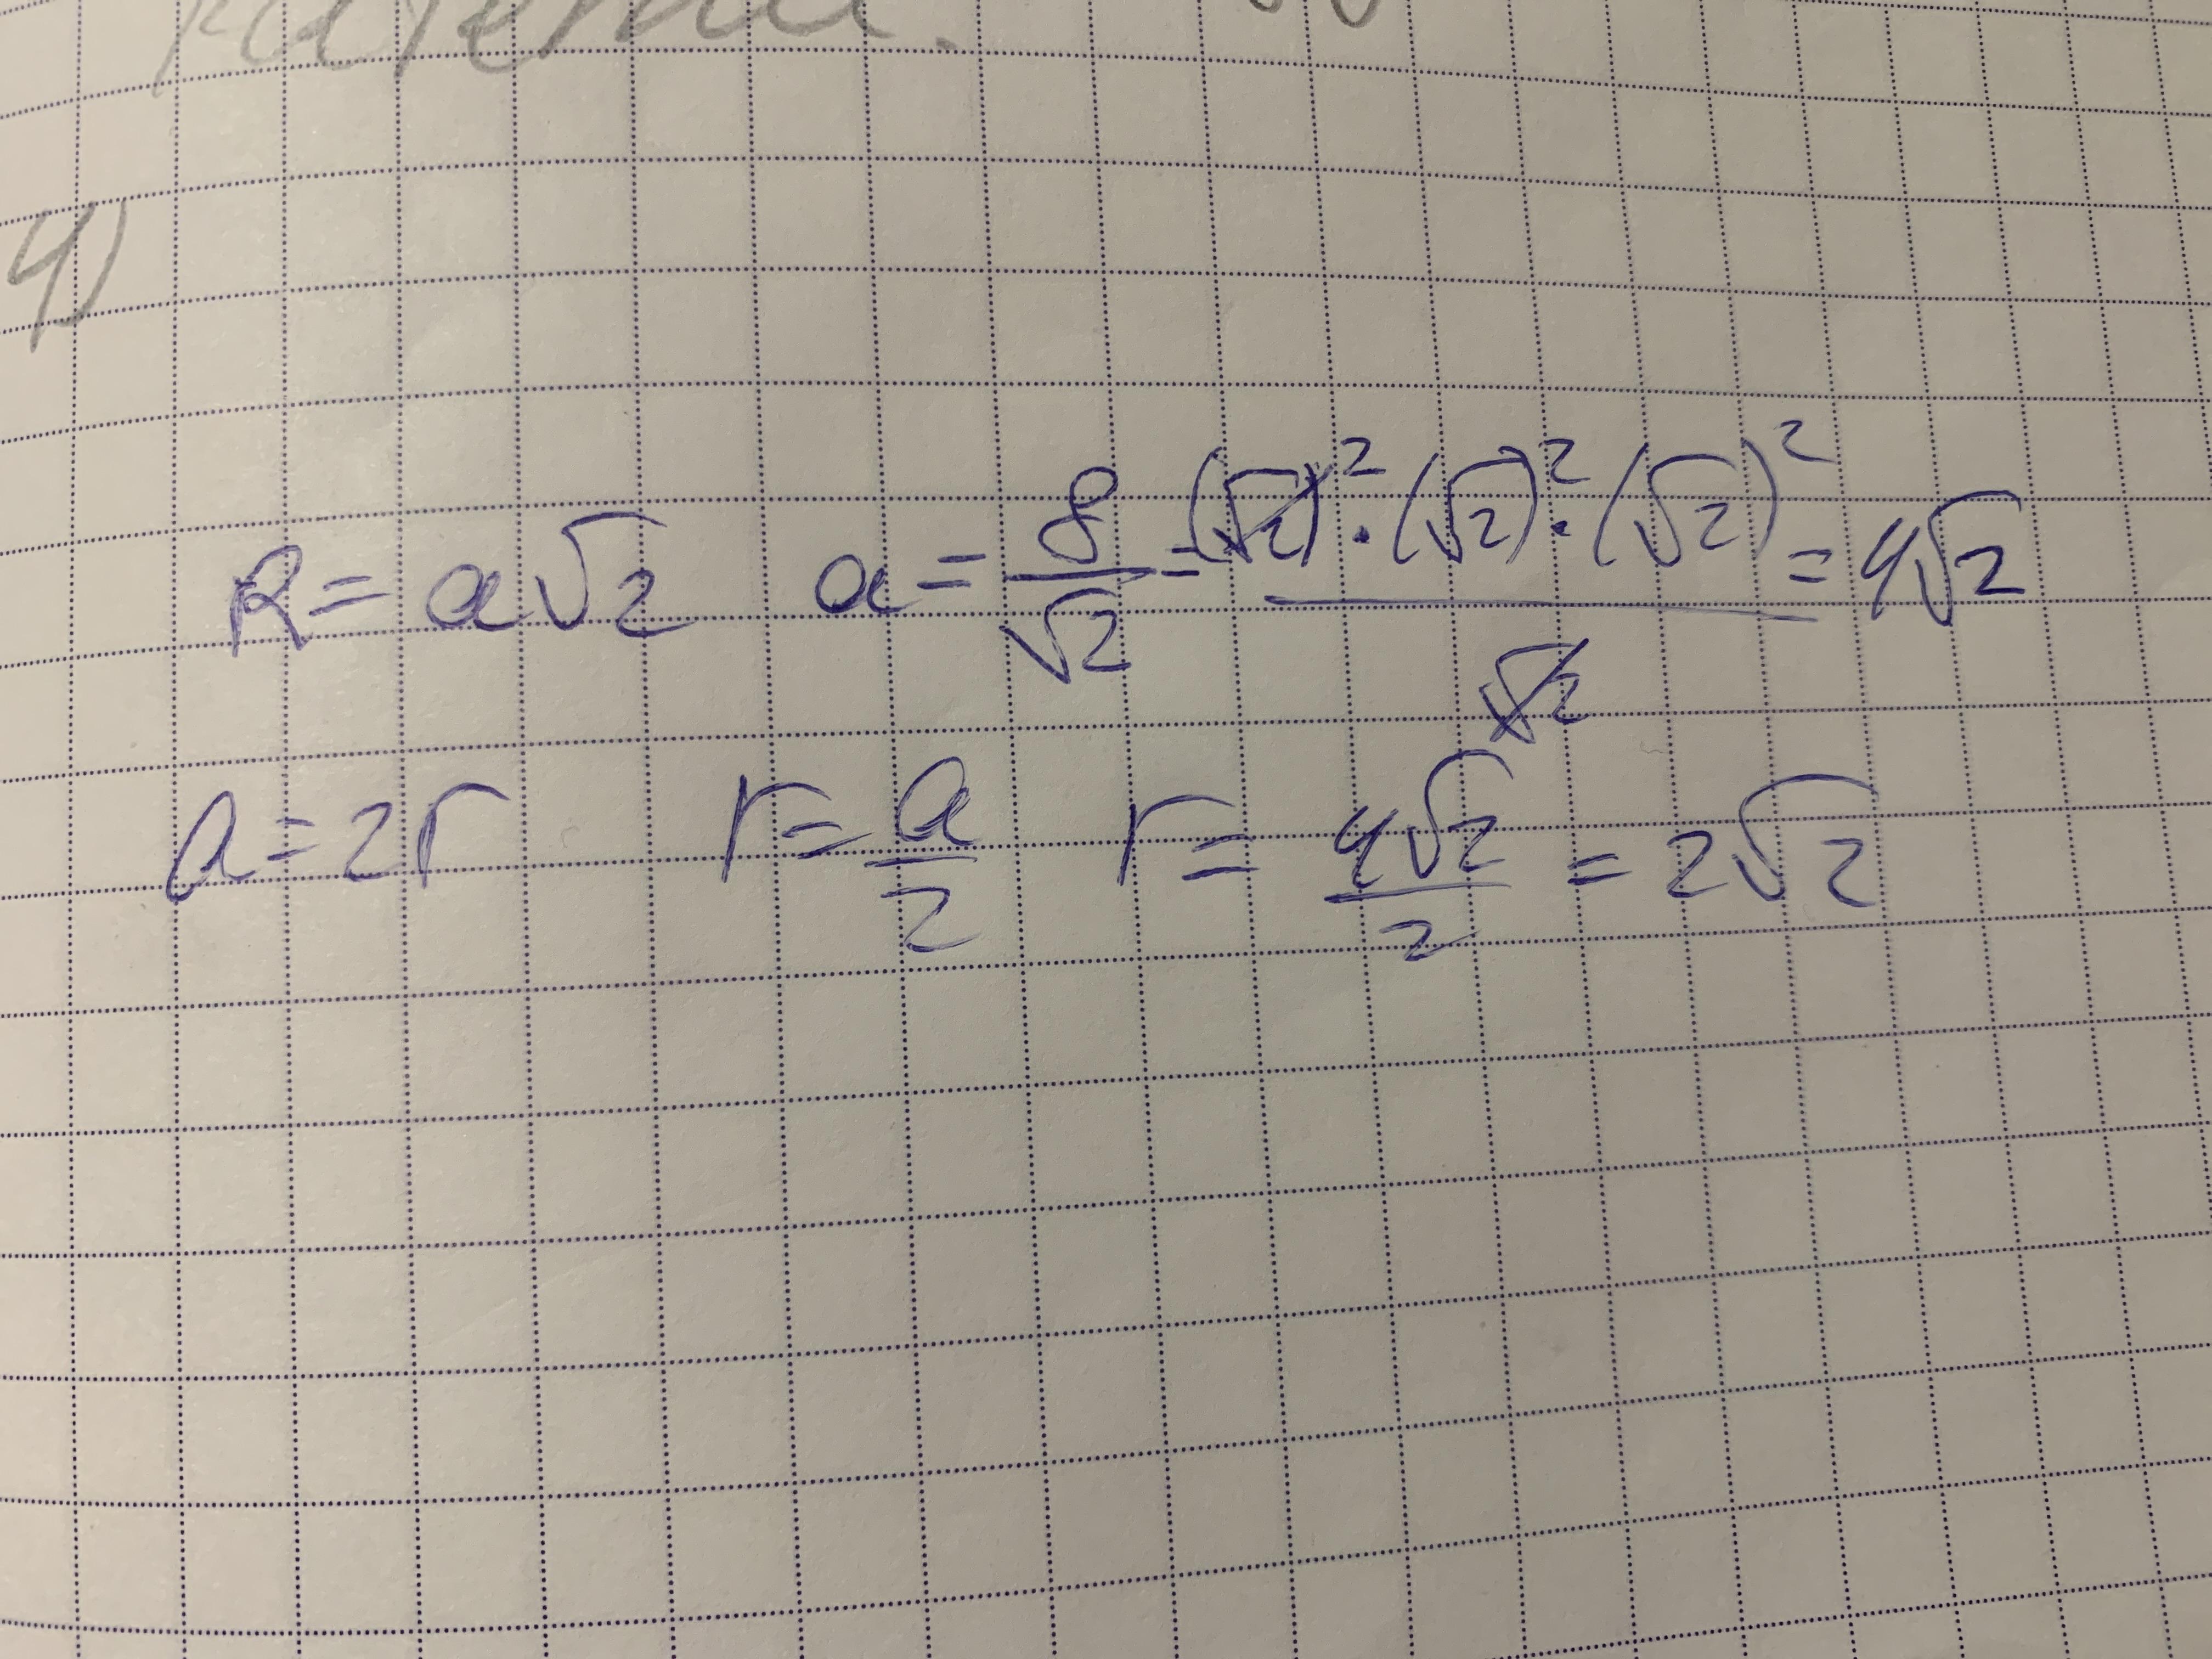 4)
R = a√2 a = 8/√2 = (√2)² · (√2)² · (√2)² / √2 = 4√2
a = 2r r = a/2 r = 4√2/2 = 2√2